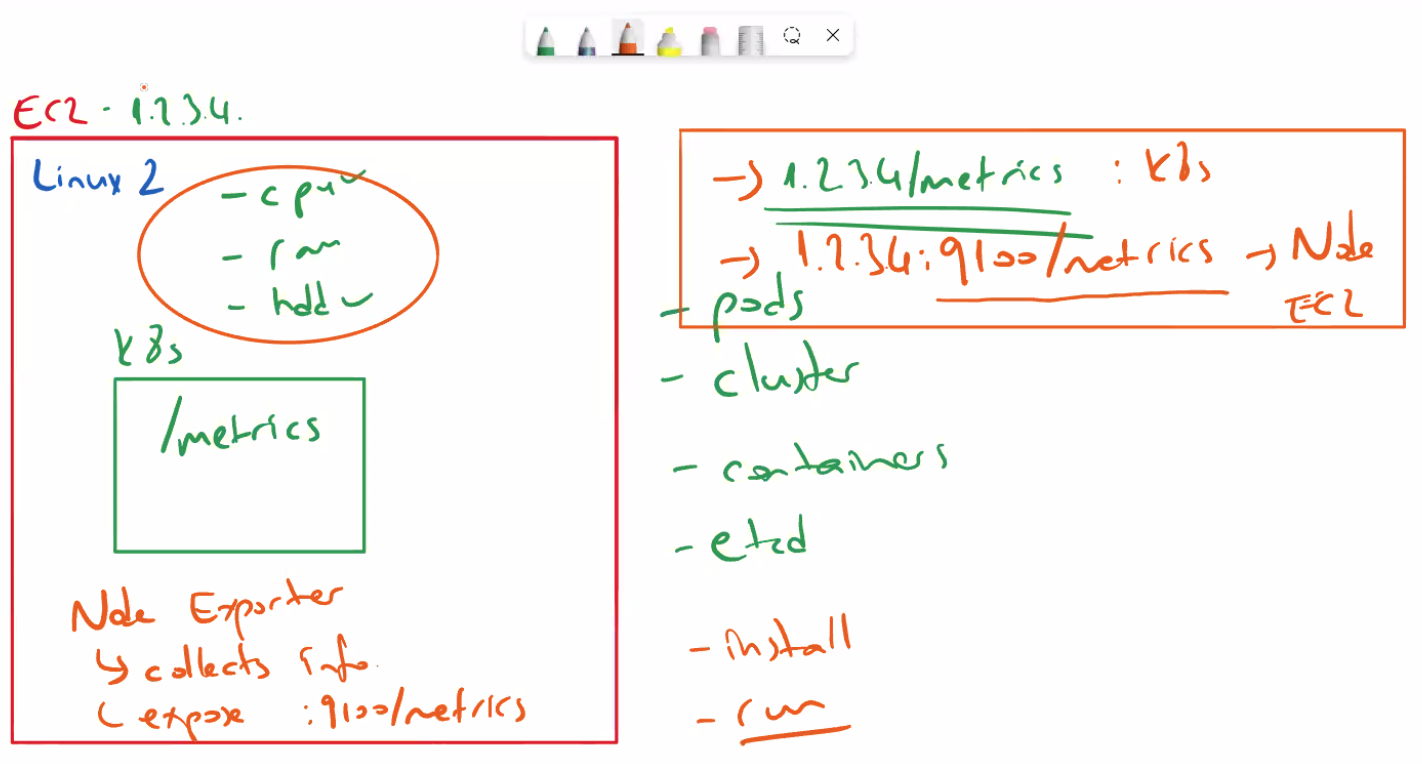 EC2 - 1.2.3.4.
Linux 2
- cpu
- ram
- hdd
k8s
/metrics
Node Exporter
↳ collects info.
expose :9100/metrics
→ 1.2.3.4/metrics : k8s
→ 1.2.3.4:9100/metrics → Node
EC2
- pods
- cluster
- containers
- etcd
- install
- run